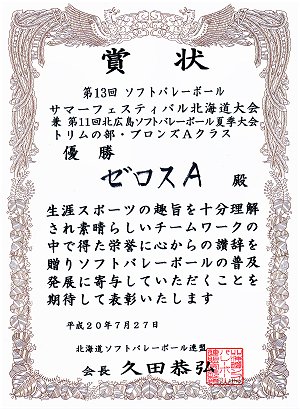 賞状
第13回 ソフトバレーボール
サマーフェスティバル北海道大会
兼 第11回北広島ソフトバレーボール夏季大会
トリムの部・ブロンズAクラス
優勝
ゼロスA 殿
生涯スポーツの趣旨を十分理解
され素晴らしいチームワークの
中で得た栄誉に心からの讃辞を
贈りソフトバレーボールの普及
発展に寄与していただくことを
期待して表彰いたします
平成20年7月27日
北海道ソフトバレーボール連盟
会長 久田恭弘